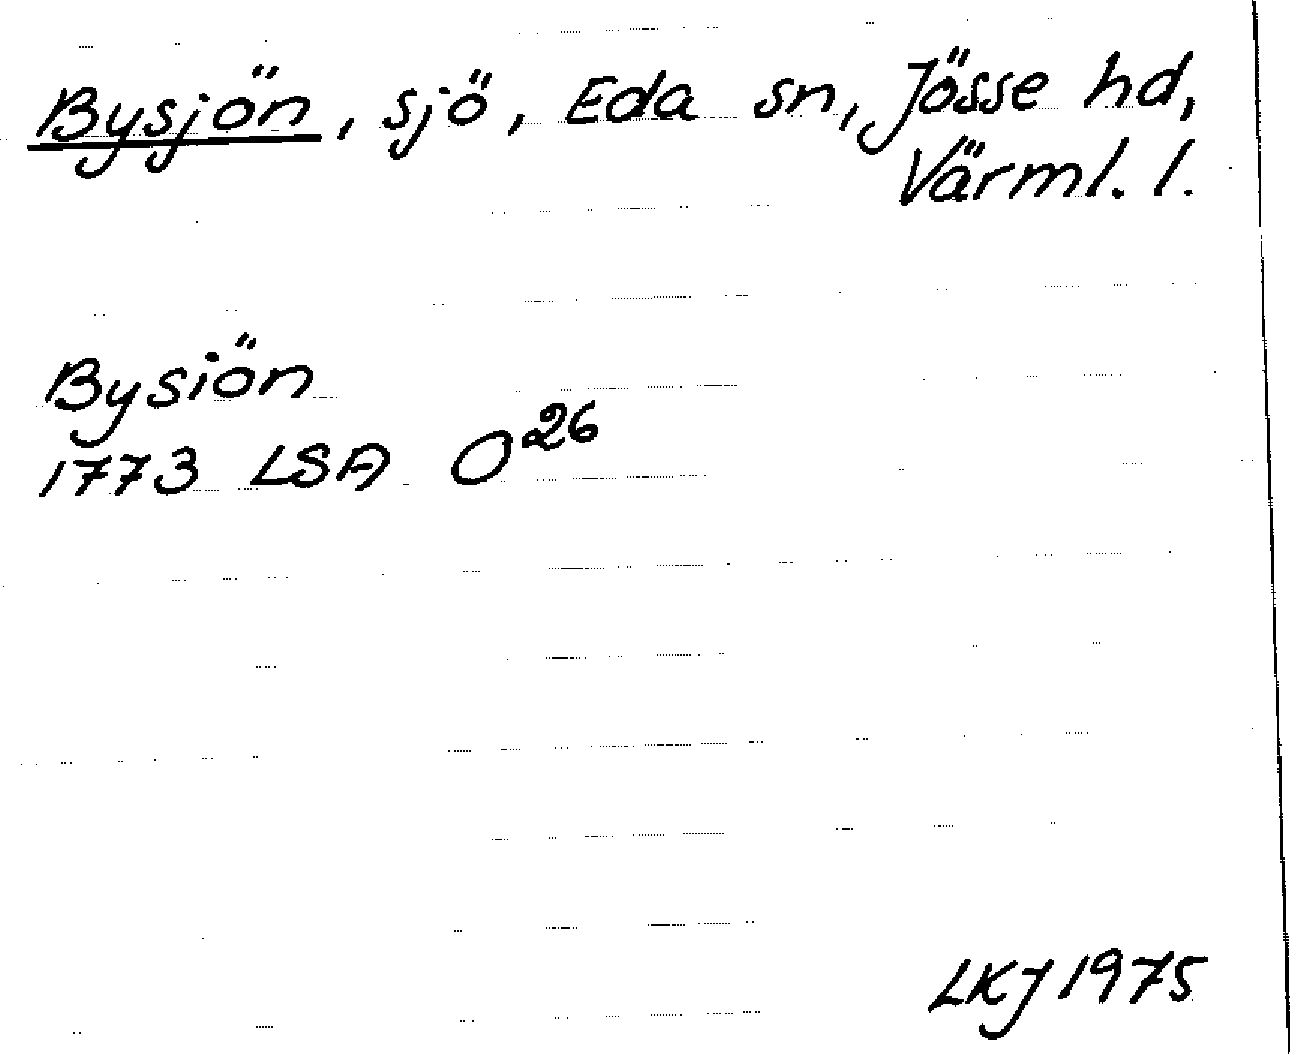 Bysjön, sjö, Eda sn, Jösse hd,
Värml. l.
Bysiön
1773 LSA O26
LKJ 1975